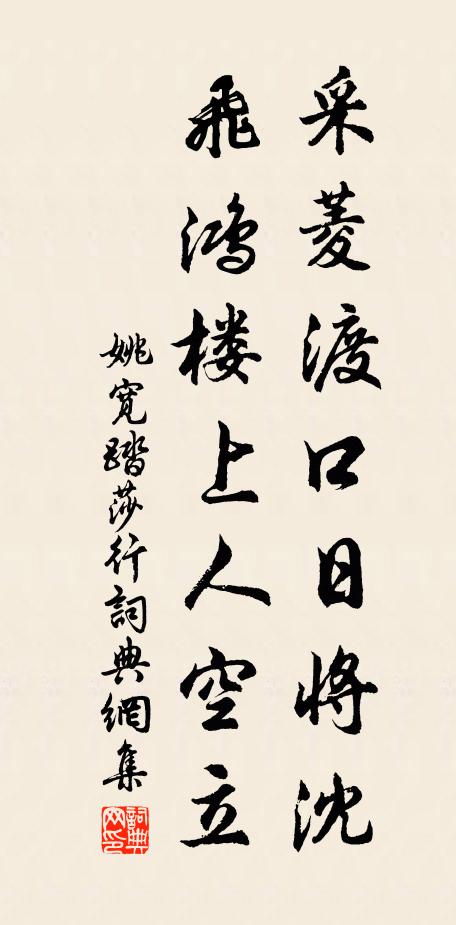 采菱渡口日将沈
飛鴻楼上人空立
姚寬踏莎行詞典網集
詞典网印